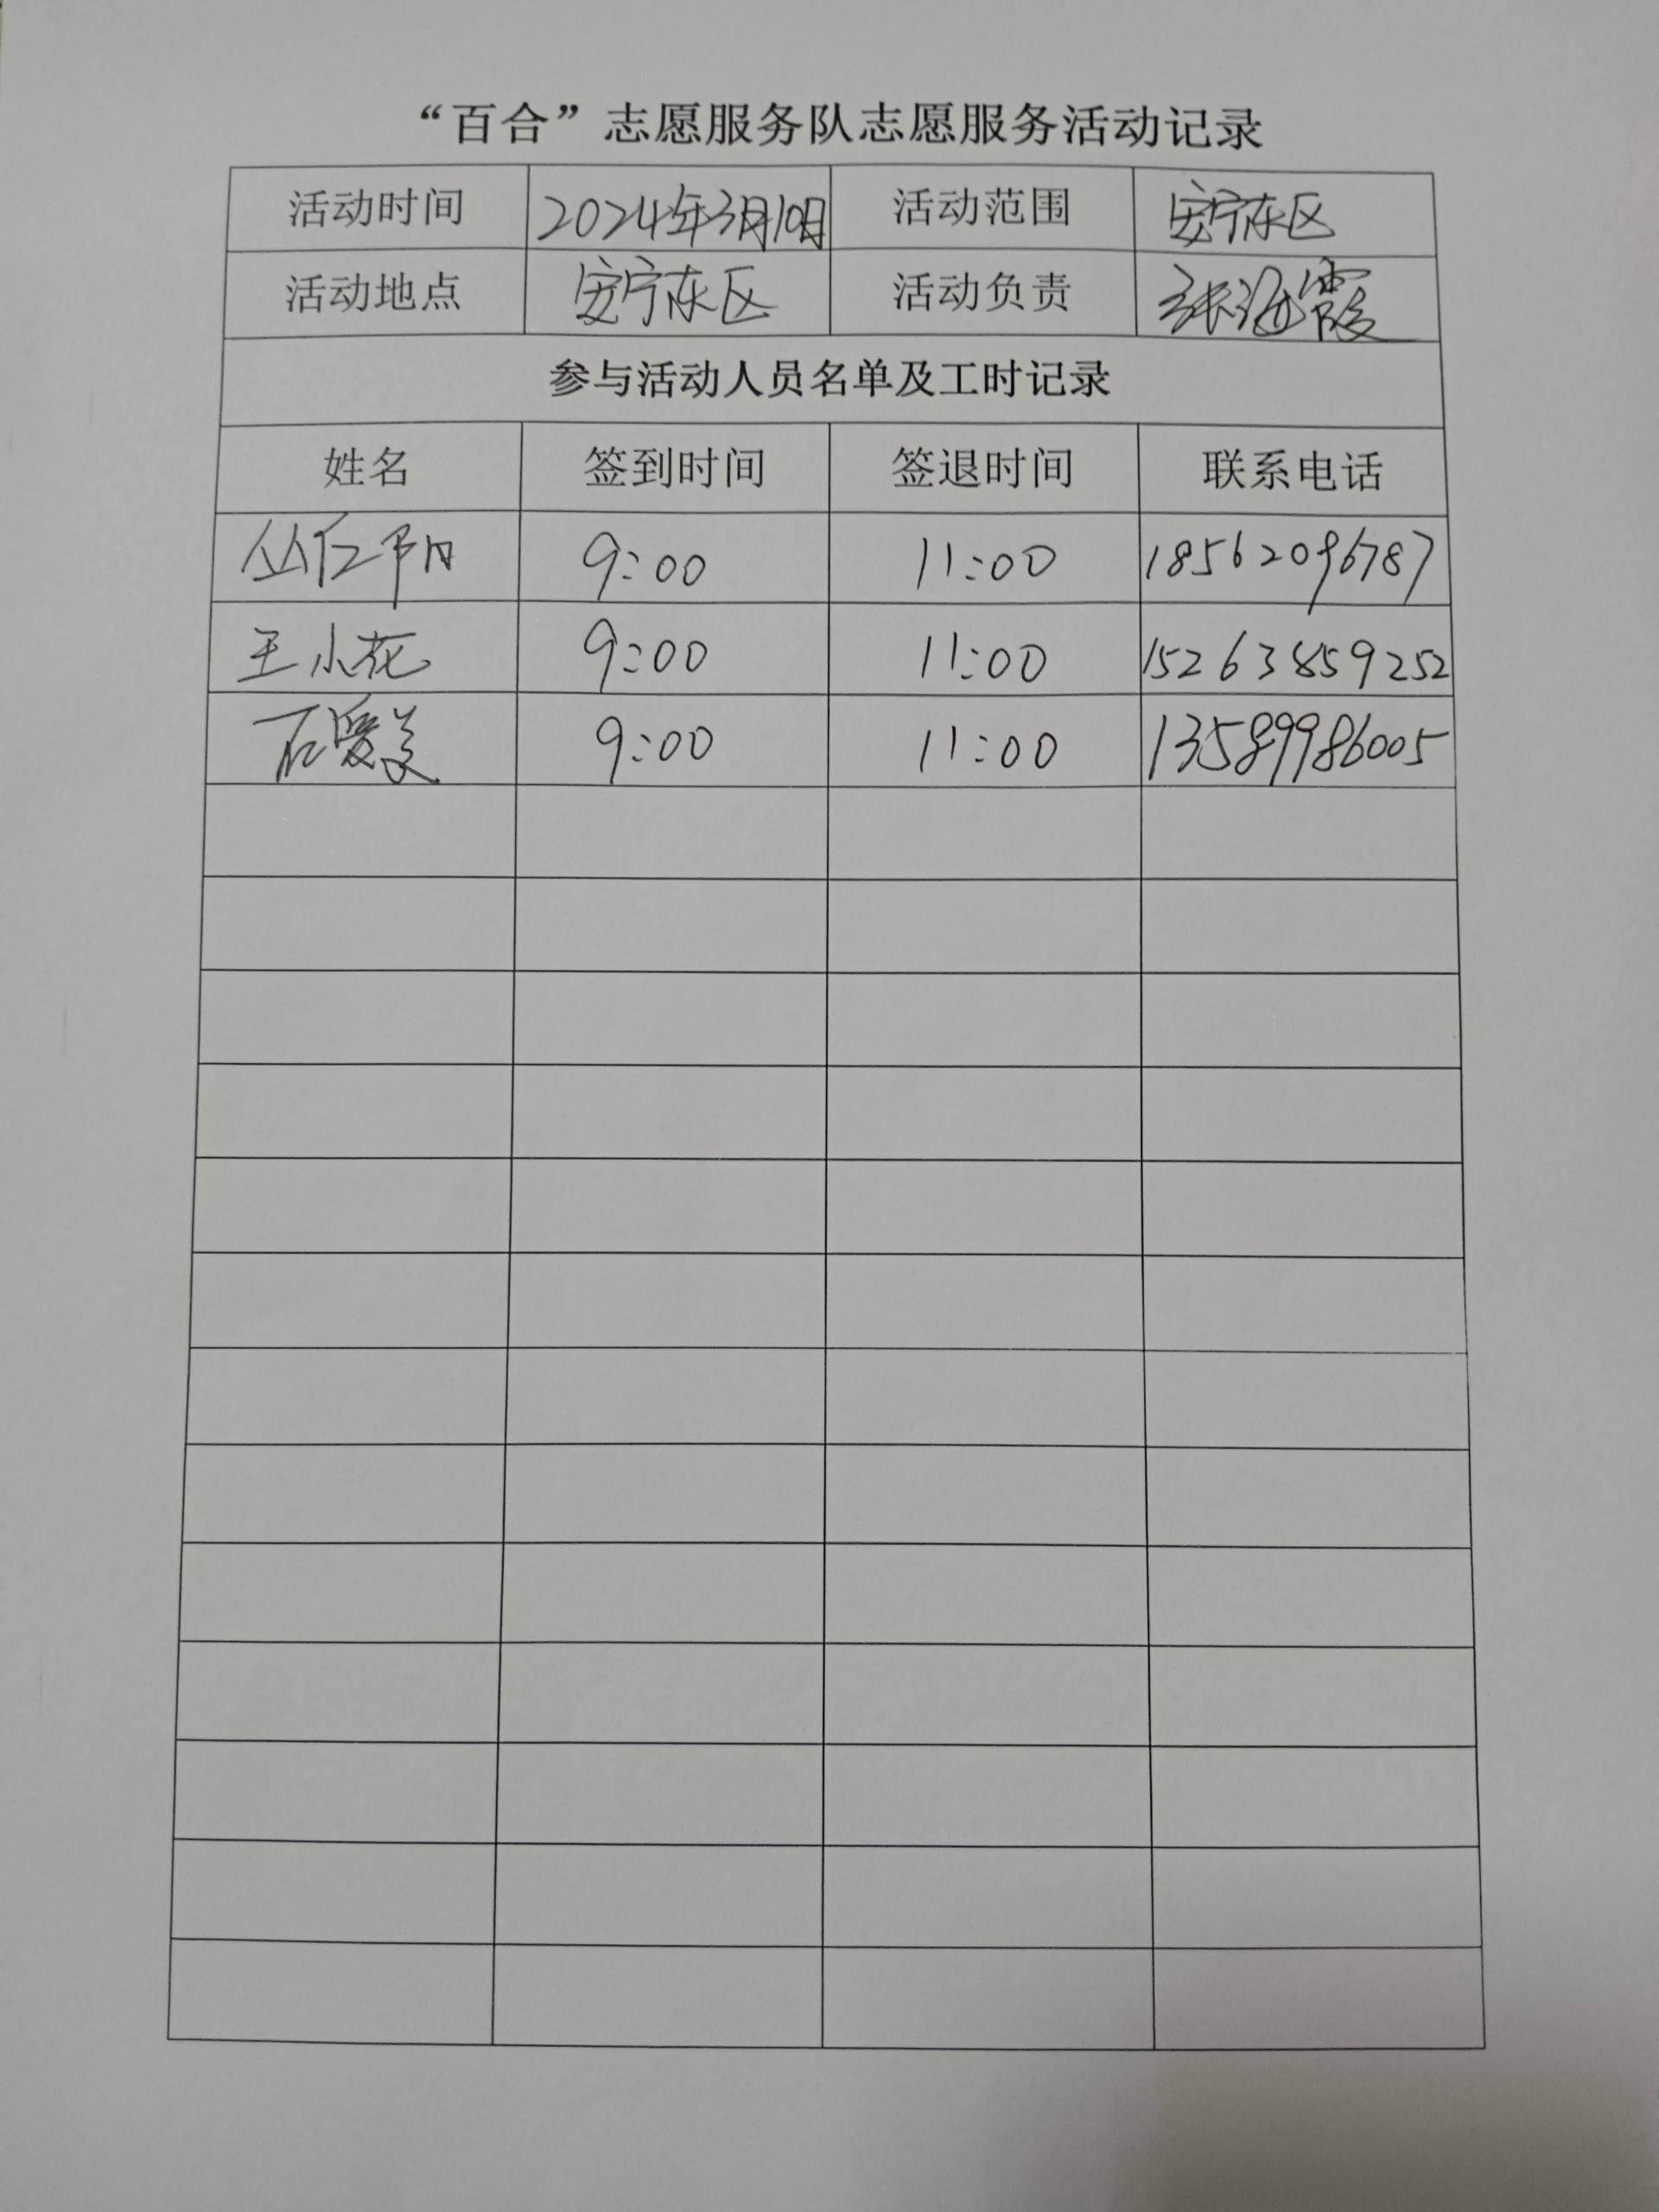 “百合”志愿服务队志愿服务活动记录
活动时间 2024年3月10日 活动范围 安宁东区
活动地点 安宁东区 活动负责 张海霞
参与活动人员名单及工时记录
姓名 签到时间 签退时间 联系电话
丛仁阳 9:00 11:00 18562096787
王小花 9:00 11:00 15263859252
石爱美 9:00 11:00 13589986005